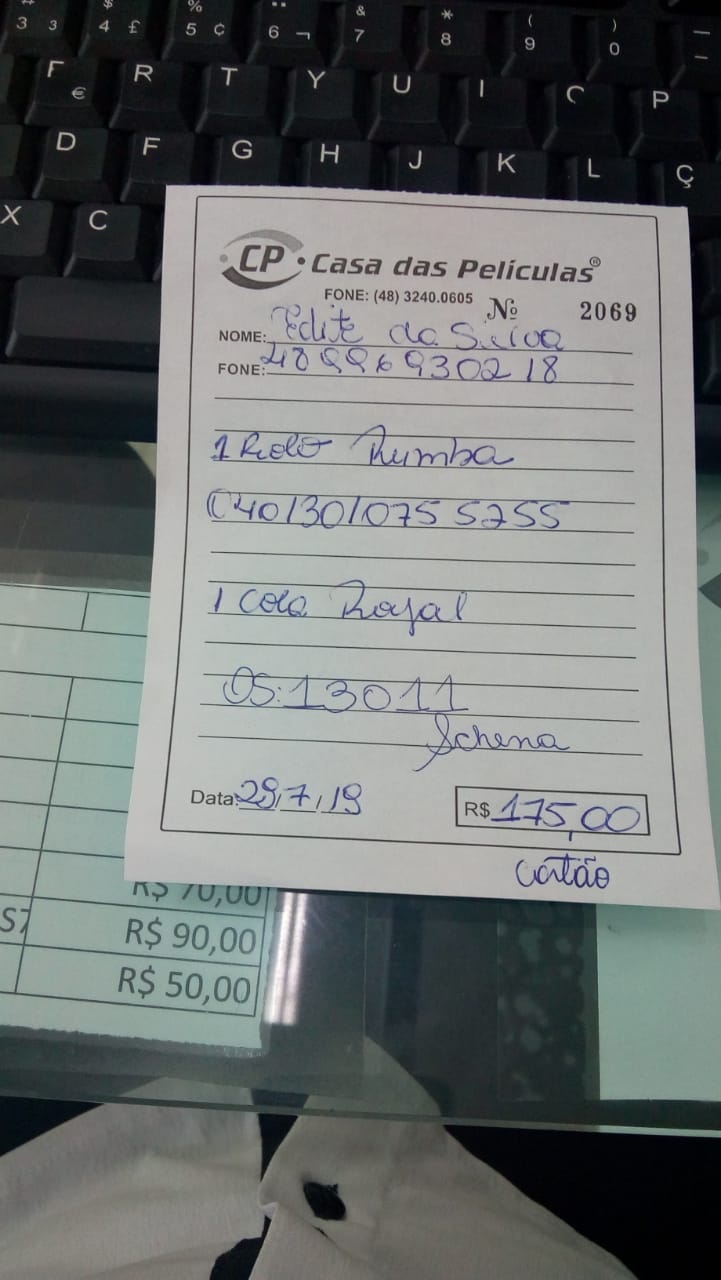 3 3 $ 4 £ % 5 ¢ ¨ 6 ¬ & 7 * 8 ( 9 ) 0
€ R T Y U I P
D F G H J K L Ç
X C
CP Casa das Películas®
FONE: (48) 3240.0605 Nº 2069
NOME: Edite da Silva
FONE: 48 996930218
1 Rolo Rumba
040/301075 5255
1 Cola Royal
OS: 13011
Schena
Data: 29/7/19 R$ 175,00
cartão
R$ 70,00
S7 R$ 90,00
R$ 50,00